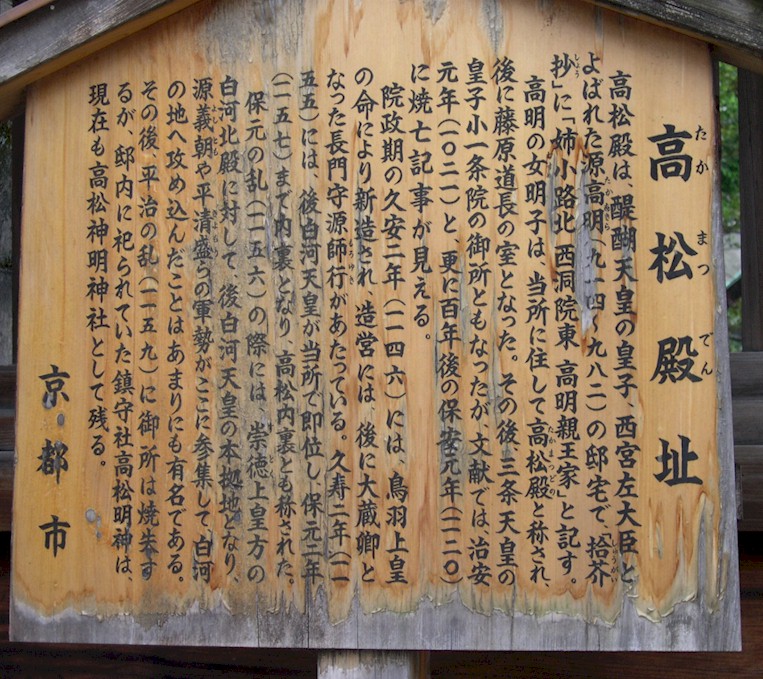 高松殿址
高松殿は、醍醐天皇の皇子、西宮左大臣と
よばれた源高明(九一四~九八二)の邸宅で、「拾芥
抄」に「姉小路北 西洞院東 高明親王家」と記す。
高明の女明子は、当所に住して高松殿と称され、
後に藤原道長の室となった。その後、三条天皇の
皇子小一条院の御所ともなったが、文献では治安
元年(一〇二一)と、更に百年後の保安元年(一一二〇)
に焼亡記事が見える。
院政期の久安二年(一一四六)には、鳥羽上皇
の命により新造され、造営には、後に大蔵卿と
なった長門守源師行があたっている。久寿二年(一一
五五)には、後白河天皇が当所で即位し、保元二年
(一一五七)まで内裏となり、高松内裏とも称された。
保元の乱(一一五六)の際には、崇徳上皇方の
白河北殿に対して、後白河天皇の本拠地となり、
源義朝や平清盛らの軍勢がここに参集して、白河
の地へ攻め込んだことはあまりにも有名である。
その後、平治の乱(一一五九)に御所は焼失す
るが、邸内に祀られていた鎮守社高松明神は、
現在も高松神明神社として残る。
京都市